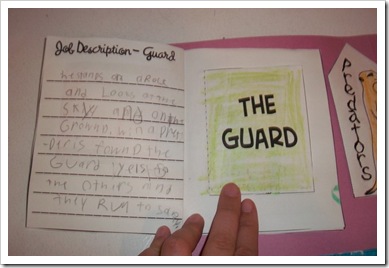 Job Description - Guard
he stands on a Rock
and Looks at the
sky and on the
Ground. when a pred
the
Guard yels to
the others and
they Run to safe
THE
GUARD
predators